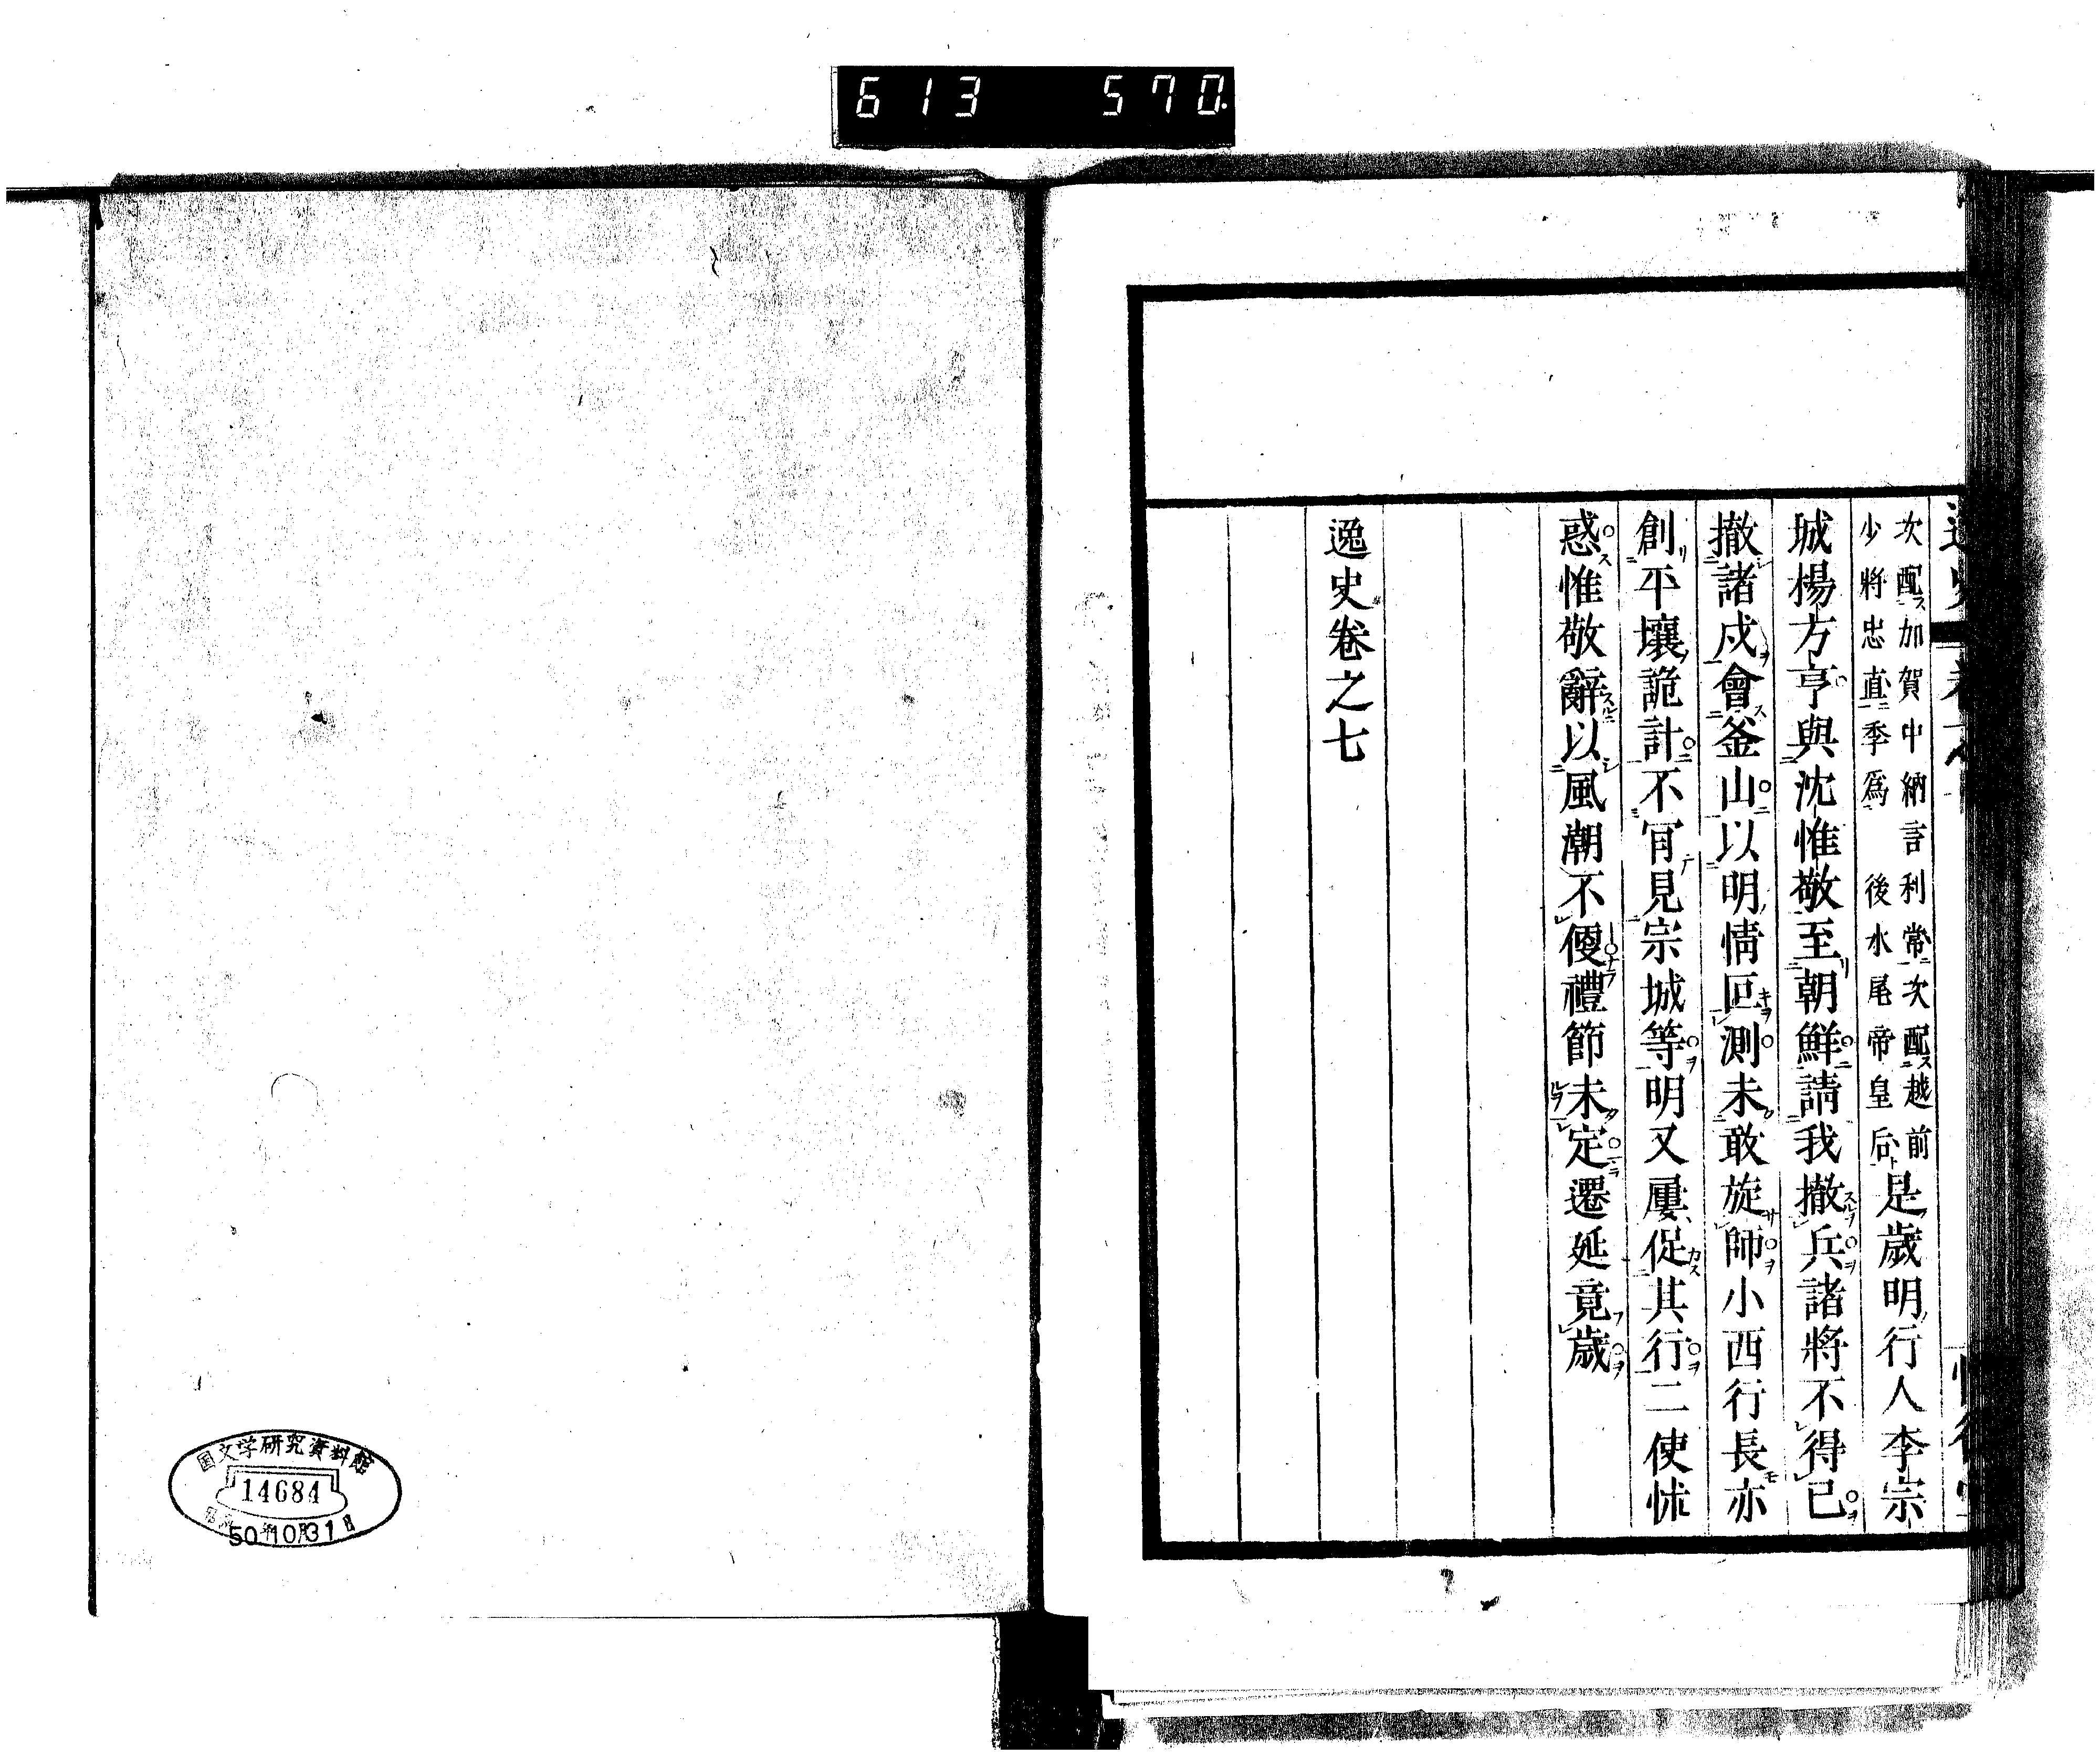 613 570
次配加賀中納言利常次配越前
少將忠直季爲 後水尾帝皇后
是歲明行人李宗
城楊方亨與沈惟敬至朝鮮請我撤兵諸將不得已
撤諸戍會釜山以明情叵測未敢旋師小西行長亦
創平壤詭計不肎見宗城等明又屢促其行二使怵
惑惟敬辭以風潮不便禮節未定遷延竟歲
逸史卷之七
国文学研究資料館
14684
50年10月31日